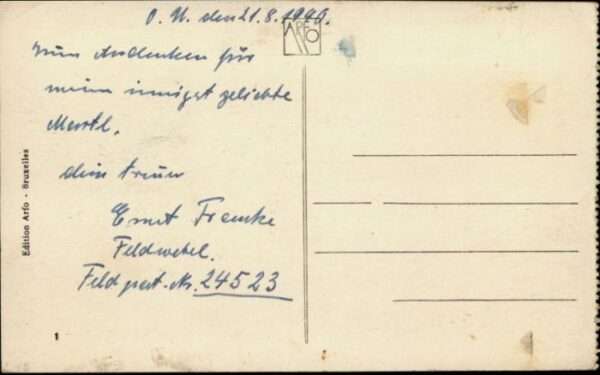 O. U. den 21.8.1940.
ARFO
Zum Andenken für
meine innigst geliebte
Martl.
dein treuer
Ernst Francke
Feldwebel.
Feldpost-Nr. 24523
Edition Arfo - Bruxelles
1